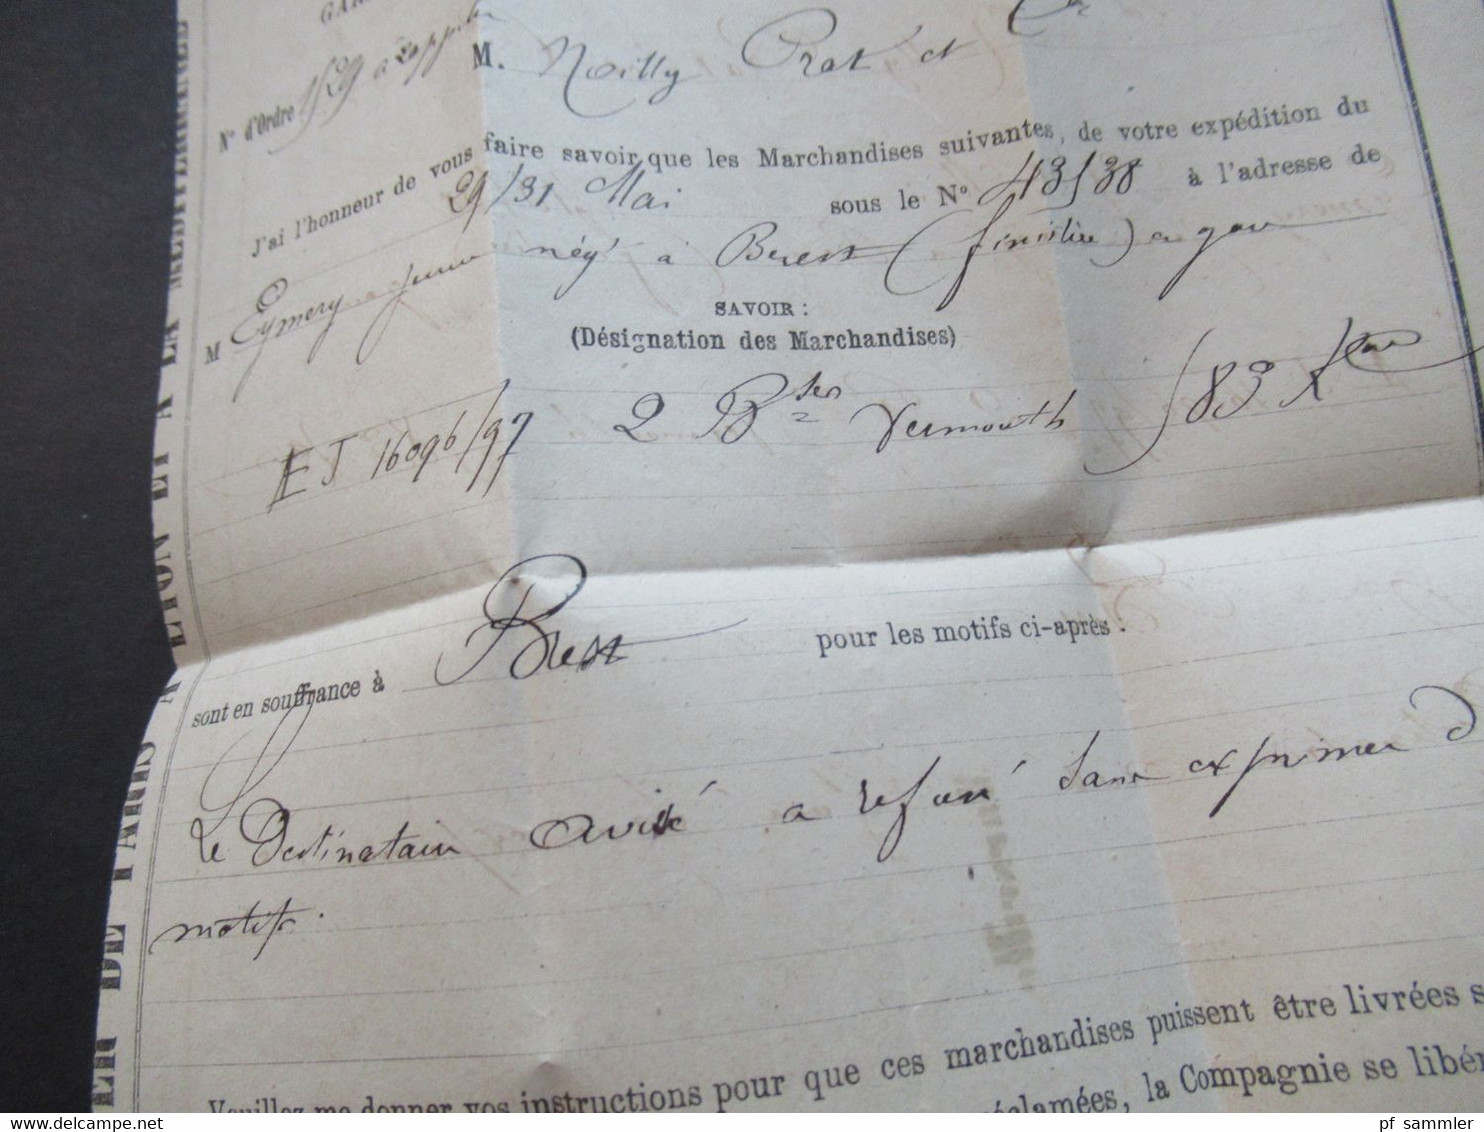 GAR
N° d'Ordre 1529 a rappeler
M. Noilly Prat et Cie
J'ai l'honneur de vous faire savoir que les Marchandises suivantes, de votre expédition du
29/31 Mai sous le N° 43/38 à l'adresse de
M Eymery jeune nég. à Brest (finistère) en gare
SAVOIR :
(Désignation des Marchandises)
EJ 16096/97 2 B ses Vermouth 183 K
sont en souffrance à Brest pour les motifs ci-après :
Le Destinataire avisé a refusé sans exprimer d
motifs.
Veuillez me donner vos instructions pour que ces marchandises puissent être livrées s
réclamées, la Compagnie se libér
ER DE PARIS A LYON ET A LA MÉDITERRANÉE
pf sammler